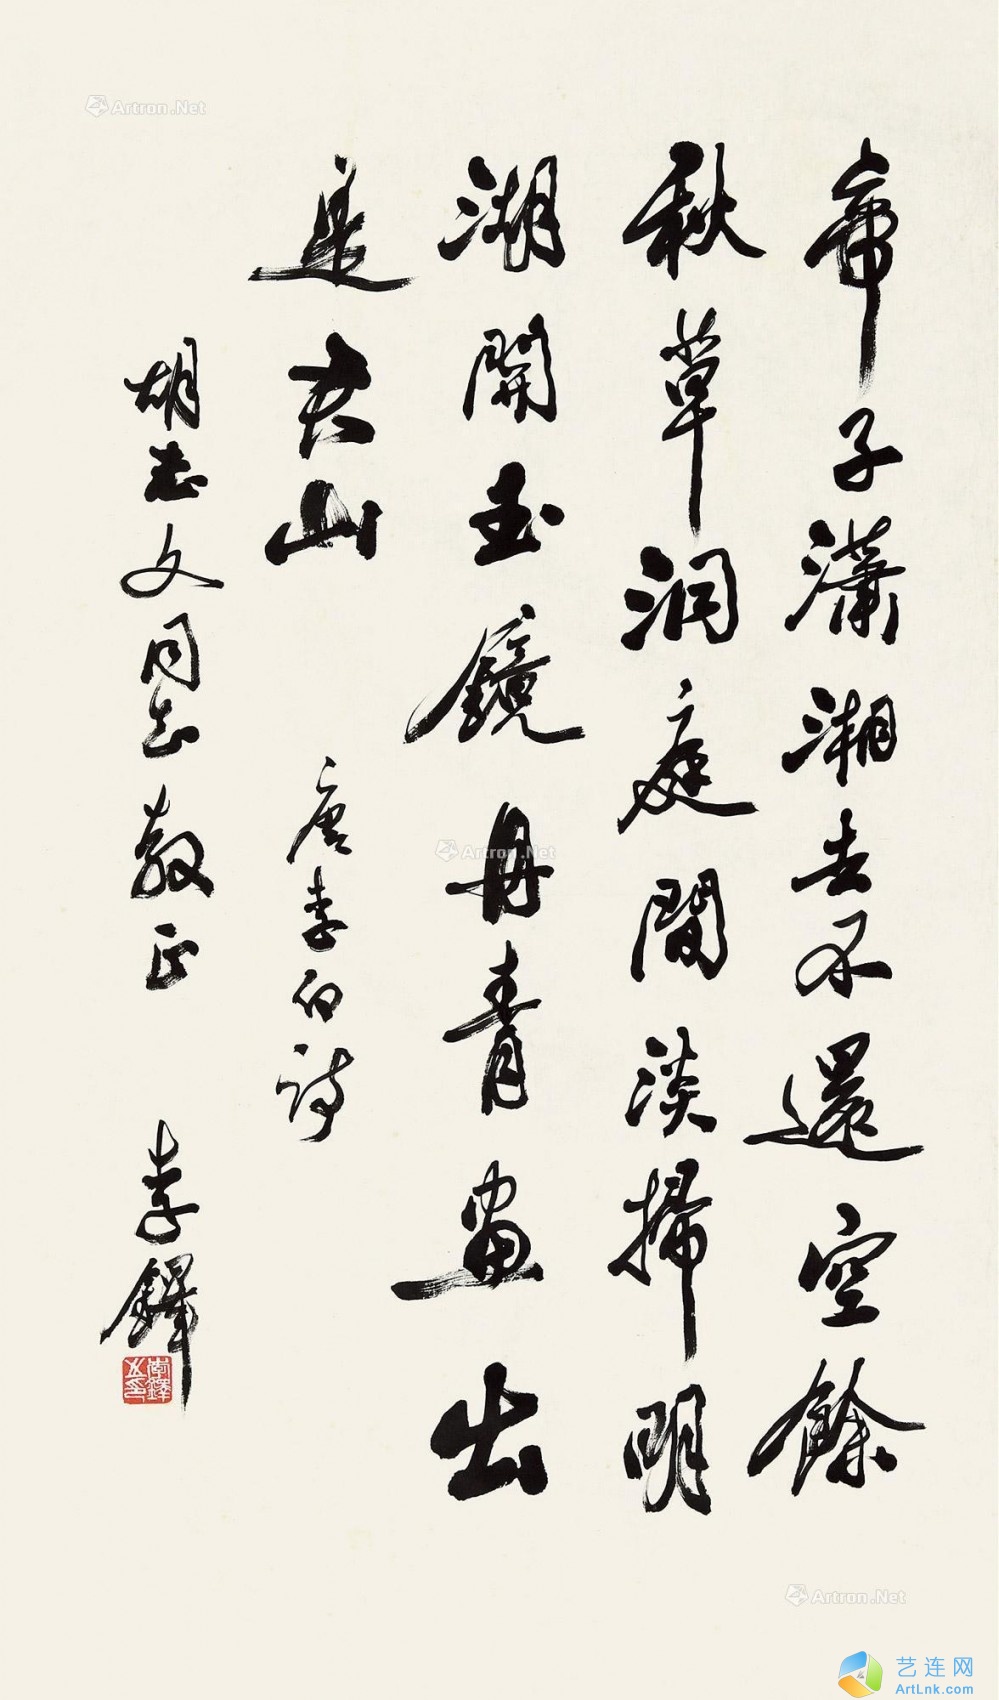 帝子瀟湘去不還空餘
秋草洞庭間淡掃明
湖開玉鏡丹青畫出
是君山
唐李白詩
胡志文同志教正
李鐸
李鐸之印
Artron.Net
Artron.Net
Artron.Net
艺连网
ArtLnk.com